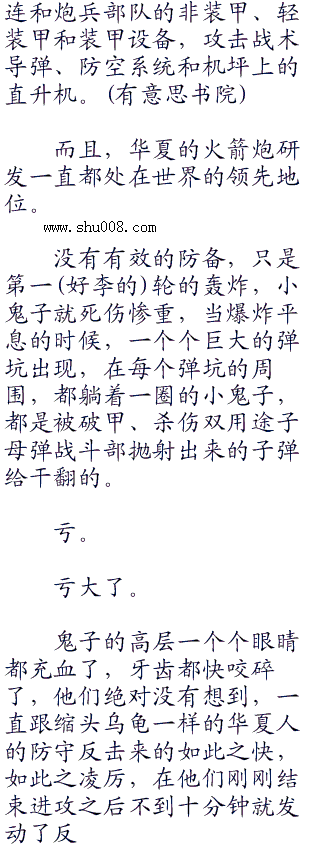 连和炮兵部队的非装甲、轻
装甲和装甲设备，攻击战术
导弹、防空系统和机坪上的
直升机。(有意思书院)
而且，华夏的火箭炮研
发一直都处在世界的领先地
位。
www.shu008.com
没有有效的防备，只是
第一(好李的)轮的轰炸，小
鬼子就死伤惨重，当爆炸平
息的时候，一个个巨大的弹
坑出现，在每个弹坑的周
围，都躺着一圈的小鬼子，
都是被破甲、杀伤双用途子
母弹战斗部抛射出来的子弹
给干翻的。
亏。
亏大了。
鬼子的高层一个个眼睛
都充血了，牙齿都快咬碎
了，他们绝对没有想到，一
直跟缩头乌龟一样的华夏人
的防守反击来的如此之快，
如此之凌厉，在他们刚刚结
束进攻之后不到十分钟就发
动了反